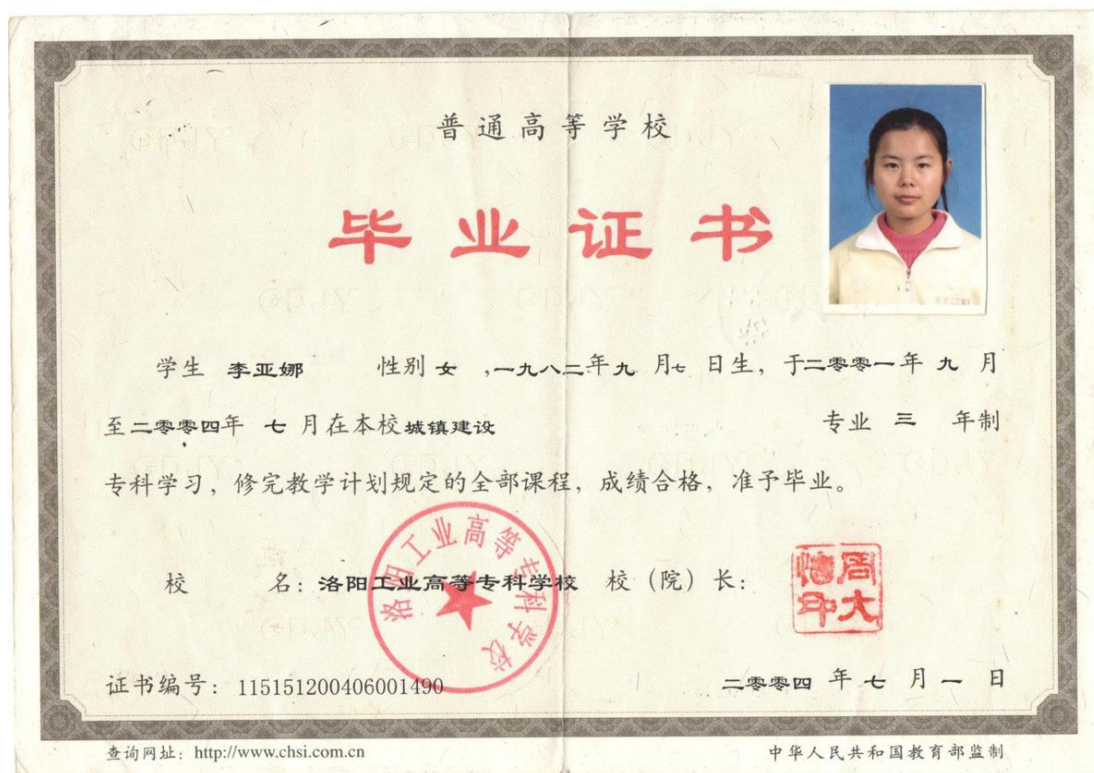 普通高等学校
毕业证书
学生 李亚娜 性别 女 ,一九八二年九月七日生，于二零零一年九月
至二零零四年 七月在本校城镇建设 专业 三 年制
专科学习，修完教学计划规定的全部课程，成绩合格，准予毕业。
校 名：洛阳工业高等专科学校 校（院）长：
洛阳工业高等专科学校
证书编号：115151200406001490
二零零四年七月一日
查询网址：http://www.chsi.com.cn
中华人民共和国教育部监制